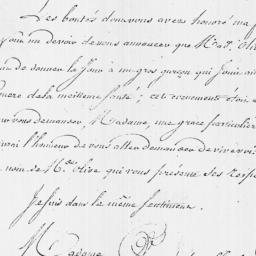 Les bontés dont vous avez honoré ma
un devoir de vous annoncer que Mad. Olive
de donner le jour à un gros garçon qui jouit ainsi
mere de la meilleure santé; cet evenement
vous demander, Madame, une grace particuliere
l'honneur de vous aller demander de vive voix
nom de Me. Olive qui vous présente ses respe
Je suis dans le même sentiment.
Madame